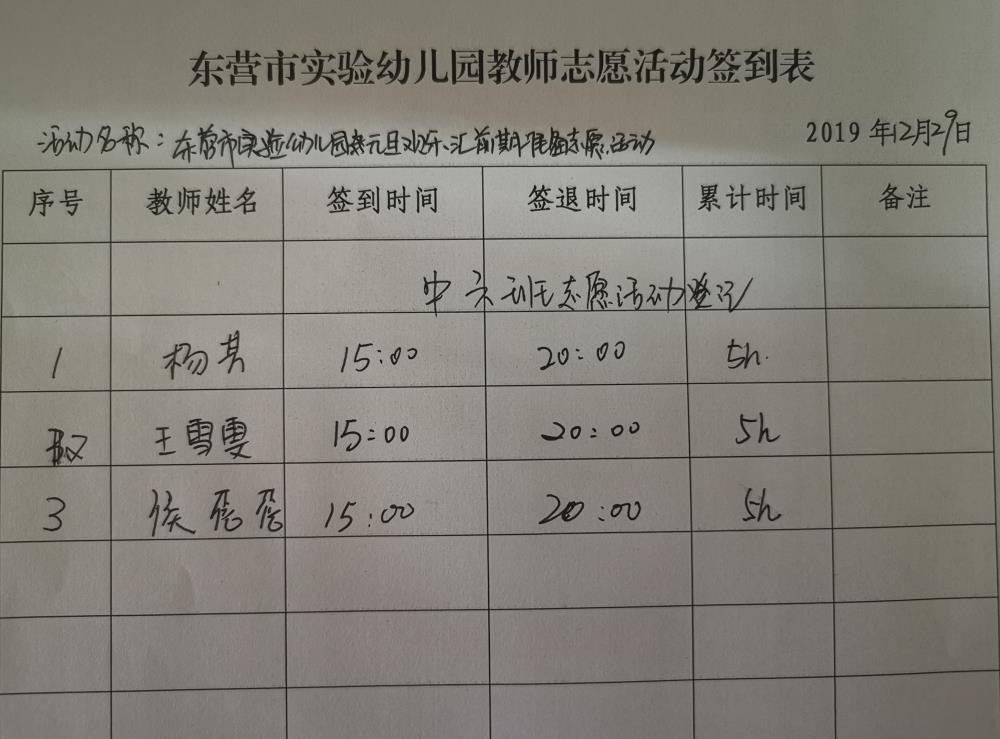 东营市实验幼儿园教师志愿活动签到表
活动名称：东营市实验幼儿园庆元旦欢乐汇前期准备志愿活动
2019年12月29日
序号 教师姓名 签到时间 签退时间 累计时间 备注
中六班志愿活动登记
1 杨其 15:00 20:00 5h.
王雪雯 15:00 20:00 5h
3 侯 15:00 20:00 5h